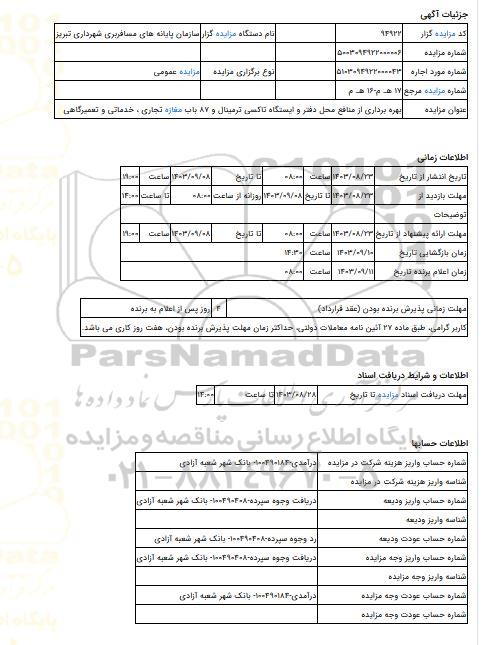 جزئیات آگهی
کد مزایده گزار ۹۴۹۲۲ نام دستگاه مزایده گزار سازمان پایانه های مسافربری شهرداری تبریز
شماره مزایده ۵۰۰۳۰۹۴۹۲۲۰۰۰۰۰۶
شماره مورد اجاره ۵۱۰۳۰۹۴۹۲۲۰۰۰۰۴۳ نوع برگزاری مزایده مزایده عمومی
شماره مزایده مرجع ۱۷ هـ م-۱۶ هـ م
عنوان مزایده بهره برداری از منافع محل دفتر و ایستگاه تاکسی ترمینال و ۸۷ باب مغازه تجاری ، خدماتی و تعمیرگاهی
اطلاعات زمانی
تاریخ انتشار از تاریخ ۱۴۰۳/۰۸/۲۳ ساعت ۰۸:۰۰ تا تاریخ ۱۴۰۳/۰۹/۰۸ ساعت ۱۹:۰۰
مهلت بازدید از ۱۴۰۳/۰۸/۲۳ تا تاریخ ۱۴۰۳/۰۹/۰۸ روزانه از ساعت ۰۸:۰۰ تا ساعت ۱۴:۰۰
توضیحات
مهلت ارائه پیشنهاد از تاریخ ۱۴۰۳/۰۸/۲۳ ساعت ۰۸:۰۰ تا تاریخ ۱۴۰۳/۰۹/۰۸ ساعت ۱۹:۰۰
زمان بازگشایی تاریخ ۱۴۰۳/۰۹/۱۰ ساعت ۱۴:۳۰
زمان اعلام برنده تاریخ ۱۴۰۳/۰۹/۱۱ ساعت ۰۸:۰۰
مهلت زمانی پذیرش برنده بودن (عقد قرارداد) ۴ روز پس از اعلام به برنده
کاربر گرامی، طبق ماده ۲۷ آئین نامه معاملات دولتی، حداکثر زمان مهلت پذیرش برنده بودن، هفت روز کاری می باشد.
ParsNamadData
اطلاعات و شرایط دریافت اسناد
مهلت دریافت اسناد مزایده تا تاریخ ۱۴۰۳/۰۸/۲۸ تا ساعت ۱۴:۰۰
پایگاه اطلاع رسانی مناقصه و مزایده
اطلاعات حسابها
شماره حساب واریز هزینه شرکت در مزایده درآمدی-۱۰۰۴۹۰۱۸۴- بانک شهر شعبه آزادی
شناسه واریز هزینه شرکت در مزایده
شماره حساب واریز ودیعه دریافت وجوه سپرده-۱۰۰۴۹۰۴۰۸- بانک شهر شعبه آزادی
شناسه واریز ودیعه
شماره حساب عودت ودیعه رد وجوه سپرده-۱۰۰۴۹۰۴۰۸- بانک شهر شعبه آزادی
شماره حساب واریز وجه مزایده دریافت وجوه سپرده-۱۰۰۴۹۰۴۰۸- بانک شهر شعبه آزادی
شناسه واریز وجه مزایده
شماره حساب عودت وجه مزایده درآمدی-۱۰۰۴۹۰۱۸۴- بانک شهر شعبه آزادی
شماره حساب عودت وجه مزایده